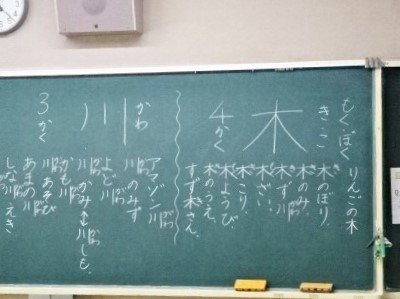 りんごの木
もく・ぼく
き・こ
木
4かく
木のぼり。
木のみ。
木ず川。
木ざい。
木こり。
木ようび。
木のうえ。
すず木さん。
かわ
川
3かく
アマゾン川
川のみず
よど川
川かみ↔川しも。
かも川
川あそび
あまの川
しな川えき